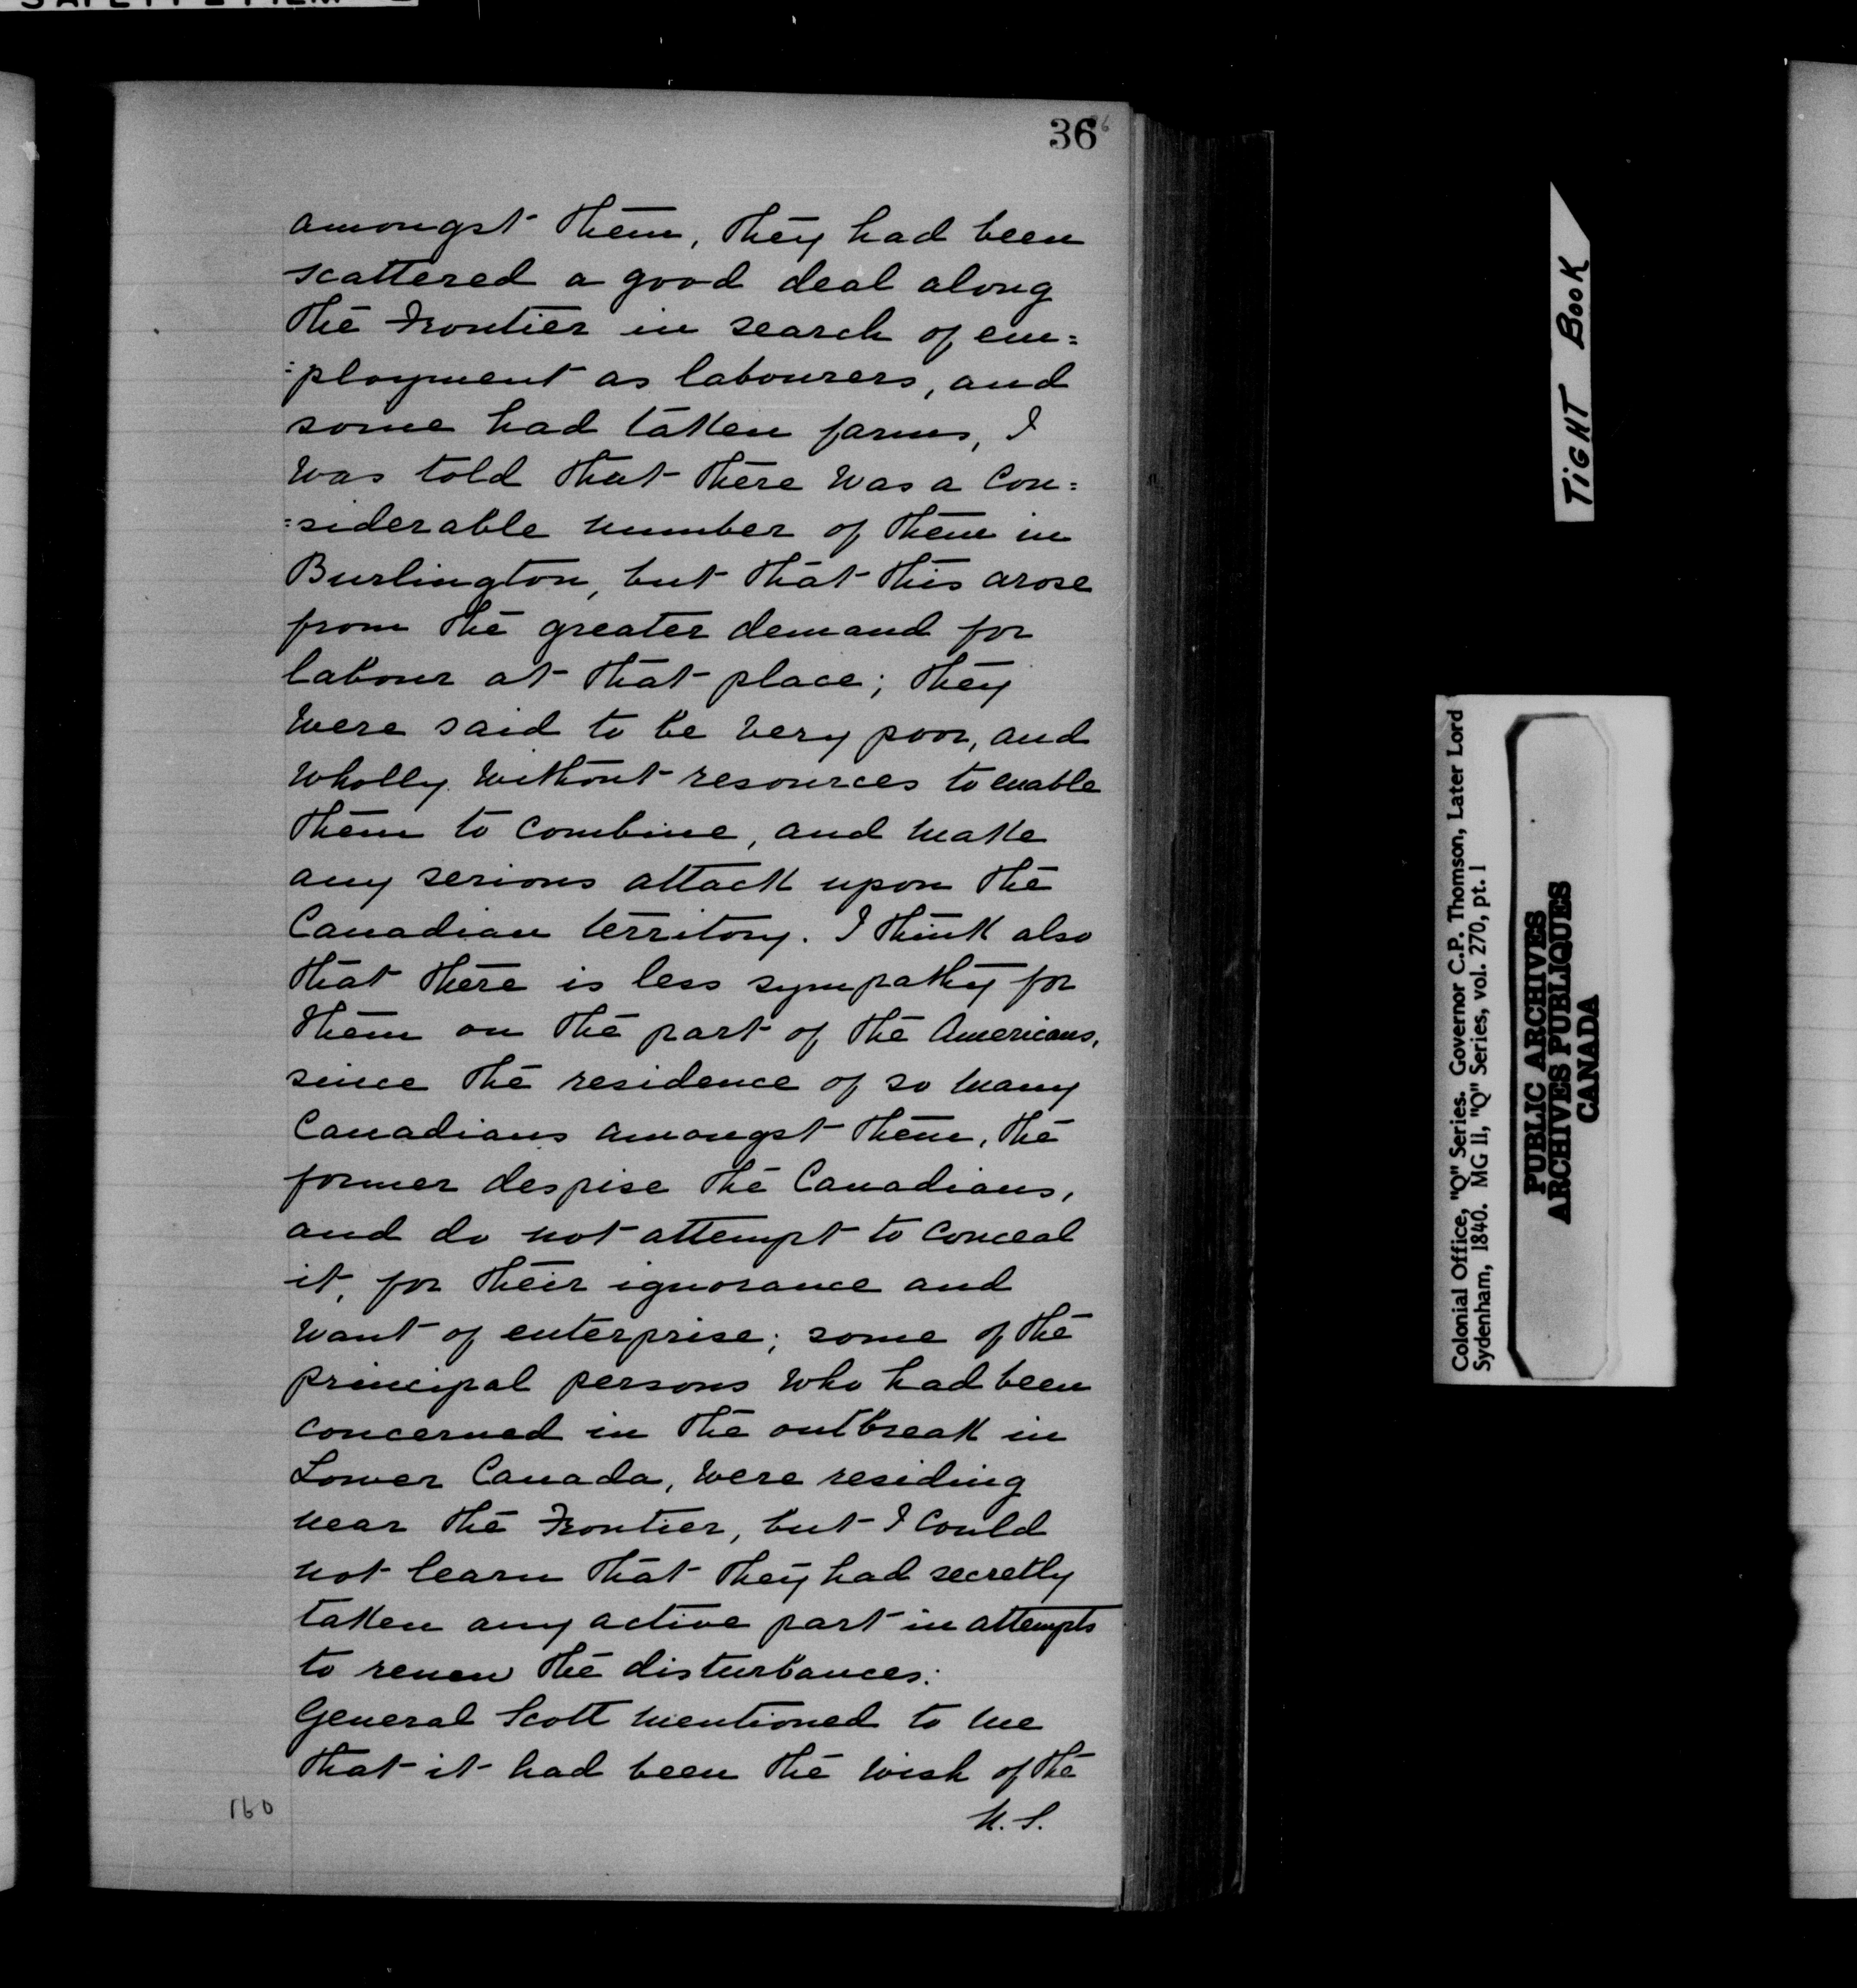 36
amongst them, they had been
scattered a good deal along
the Frontier in search of em=
=ployment as labourers, and
some had taken farms, I
was told that there was a con=
=siderable number of them in
Burlington, but that this arose
from the greater demand for
labour at that place; they
were said to be very poor, and
wholly without resources to enable
them to combine, and make
any serious attack upon the
Canadian territory. I think also
that there is less sympathy for
them on the part of the Americans,
since the residence of so many
Canadians amongst them, the
former despise the Canadians,
and do not attempt to conceal
it, for their ignorance and
want of enterprise; some of the
principal persons who had been
concerned in the outbreak in
Lower Canada, were residing
near the Frontier, but I could
not learn that they had secretly
taken any active part in attempts
to renew the disturbances.
General Scott mentioned to me
that it had been the wish of the
U.S.
160
TIGHT BOOK
Colonial Office, "Q" Series. Governor C.P. Thomson, Later Lord
Sydenham, 1840. MG 11, "Q" Series, vol. 270, pt. 1
PUBLIC ARCHIVES
ARCHIVES PUBLIQUES
CANADA